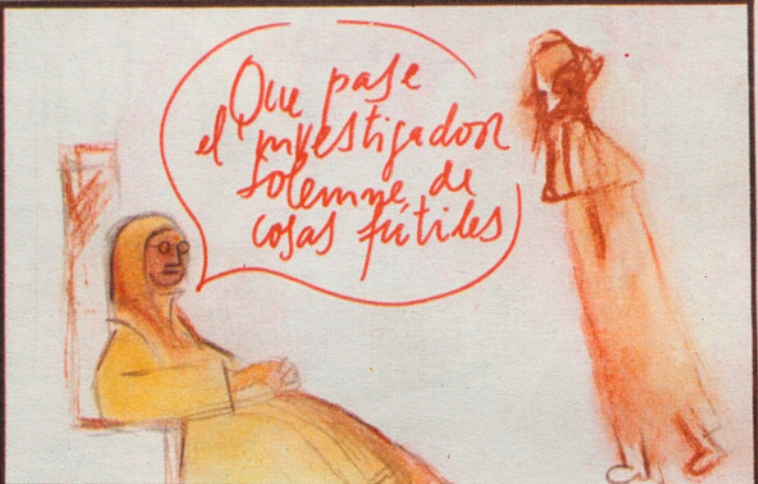 Que pase
el investigador
solemne de
cosas fútiles